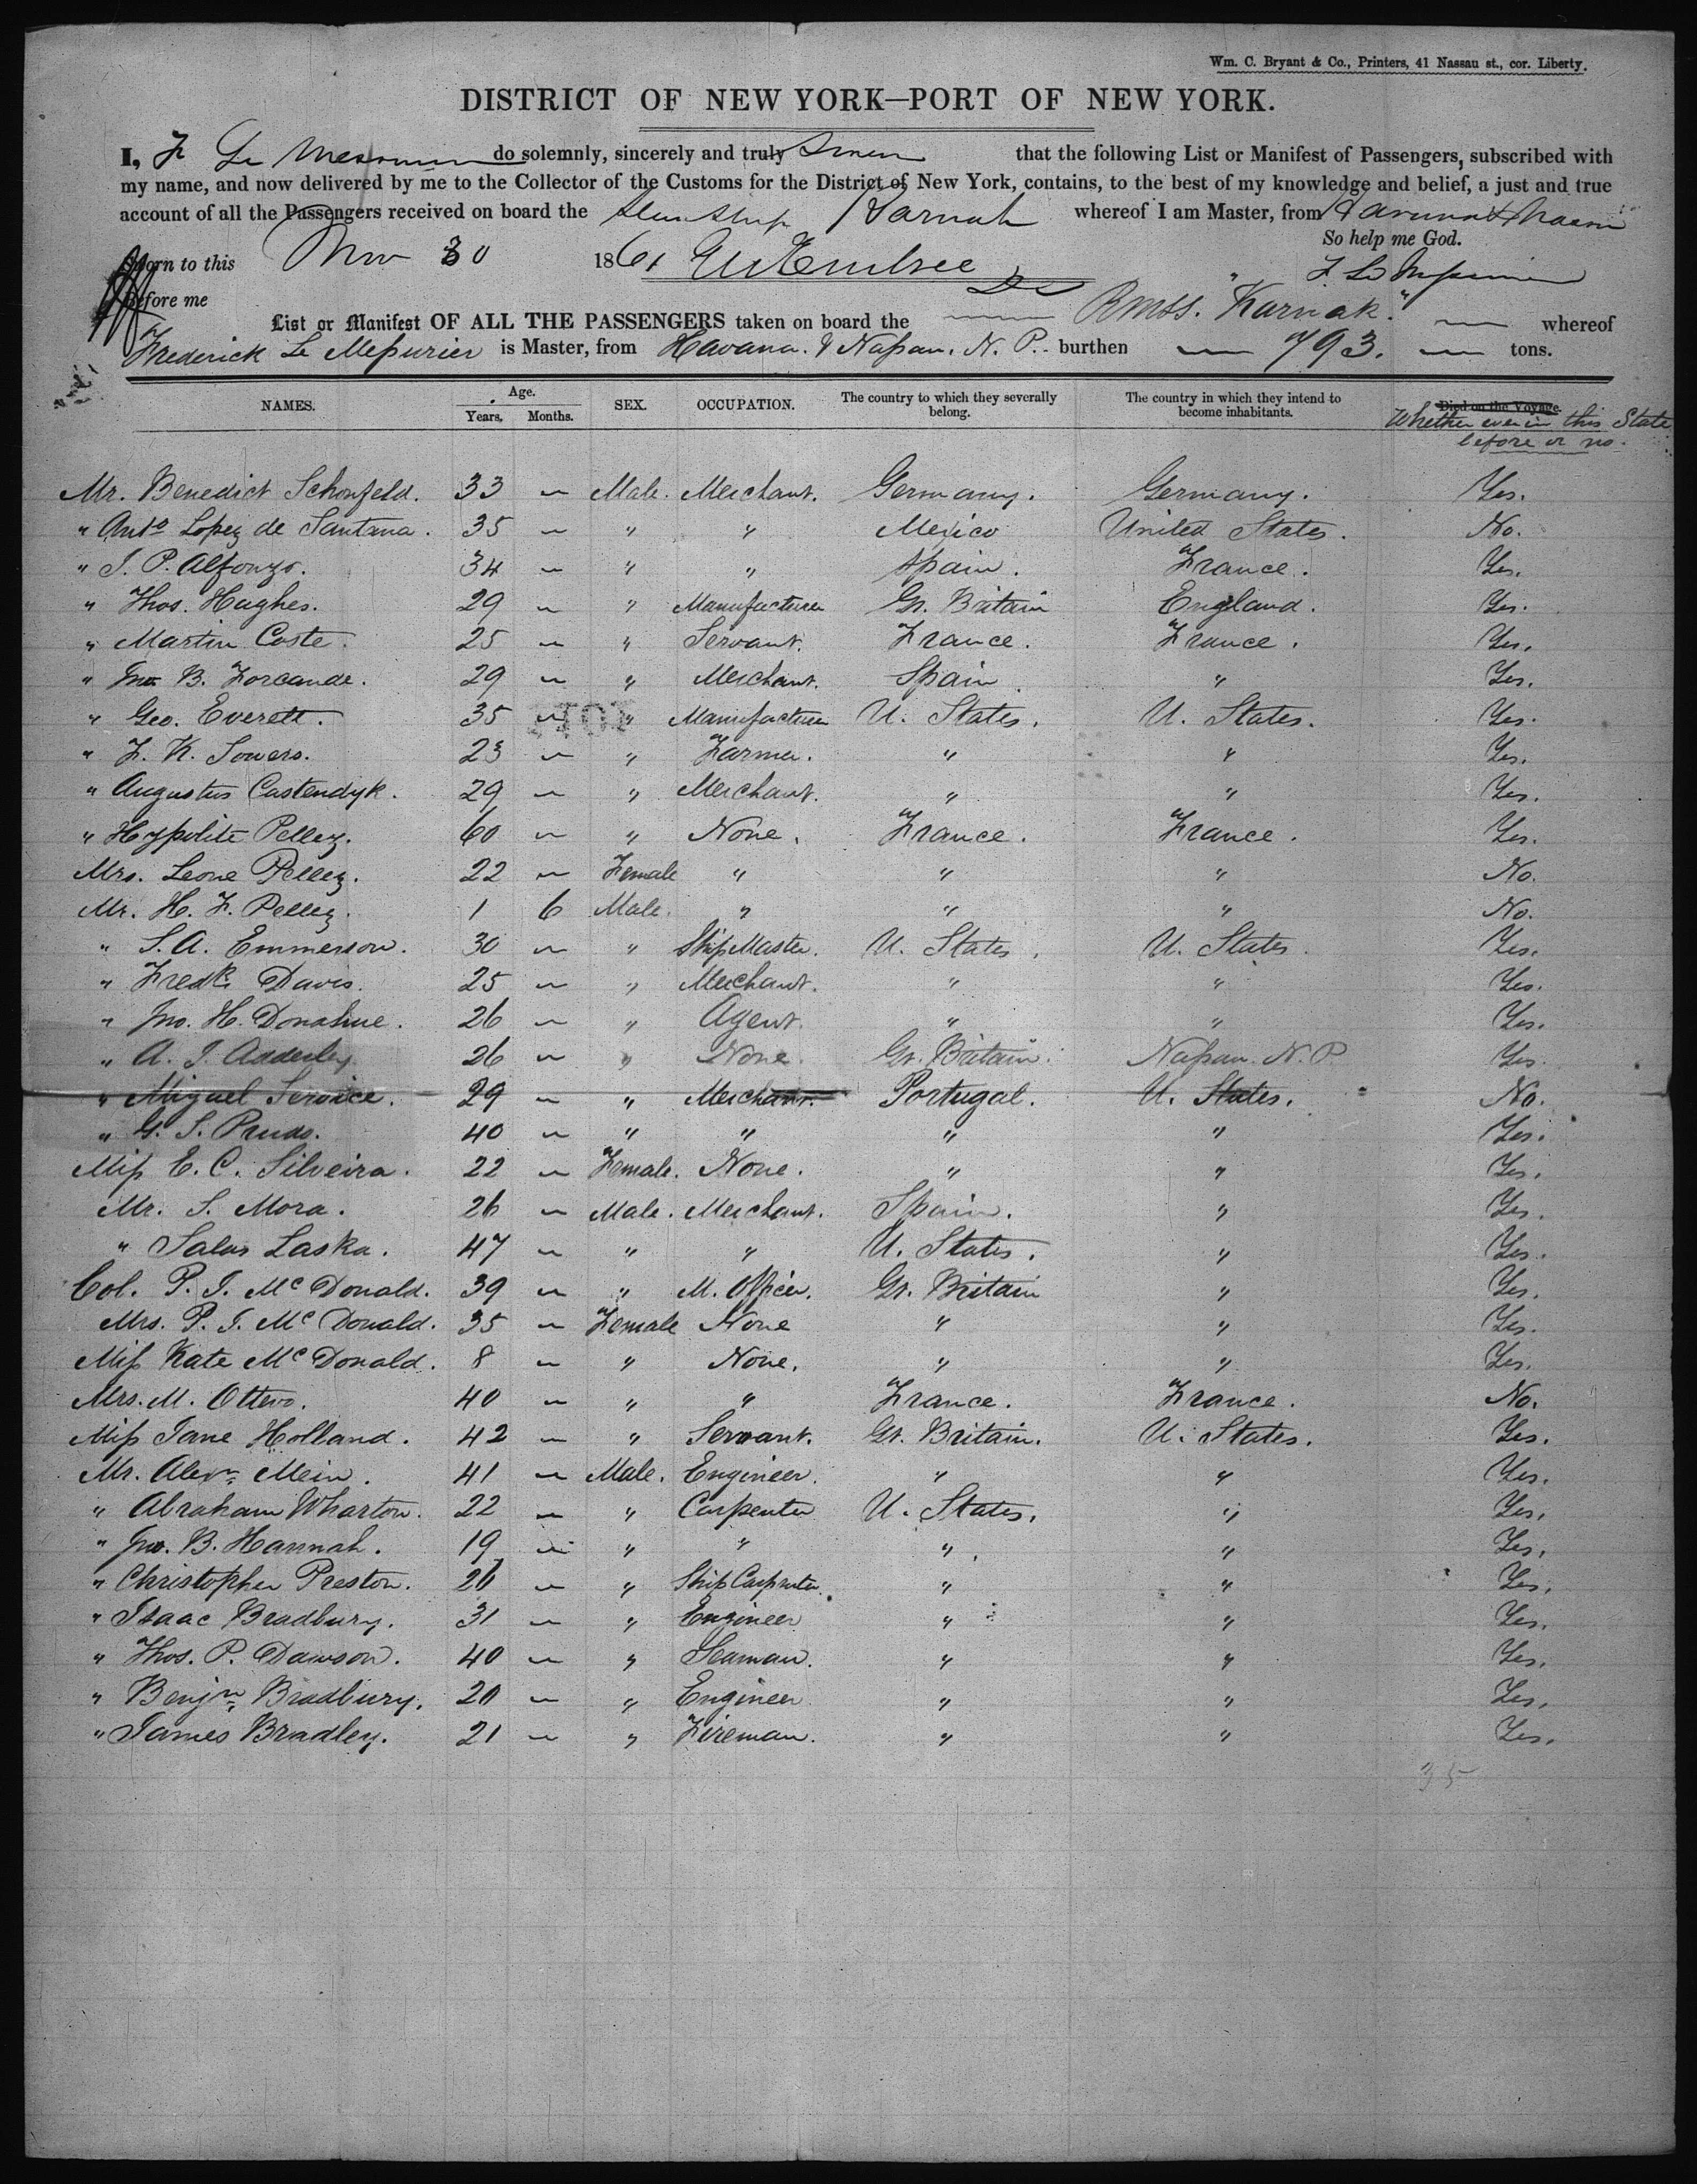 Wm. C. Bryant & Co., Printers, 41 Nassau st., cor. Liberty.
DISTRICT OF NEW YORK—PORT OF NEW YORK.
I, F Le Messurier do solemnly, sincerely and truly Swear that the following List or Manifest of Passengers, subscribed with
my name, and now delivered by me to the Collector of the Customs for the District of New York, contains, to the best of my knowledge and belief, a just and true
account of all the Passengers received on board the Steamship Karnak whereof I am Master, from Havana & Nassau
So help me God.
Sworn to this Nov 30 1861 F. Le Messurier
Before me
List or Manifest OF ALL THE PASSENGERS taken on board the RMSS. "Karnak." whereof
Frederick Le Meſsurier is Master, from Havana. & Naſsau. N. P. burthen 793. tons.
NAMES. Age. Years. Months. SEX. OCCUPATION. The country to which they severally belong. The country in which they intend to become inhabitants. Died on the Voyage.
Whether ever in this State
before or no.
Mr. Benedict Schonfeld. 33 " Male. Merchant. Germany. Germany. Yes.
" Anto Lopez de Santana. 35 " " " Mexico United States. No.
" J. P. Alfonzo. 34 " " " Spain. France. Yes.
" Thos. Hughes. 29 " " Manufacturer Gt. Britain England. Yes.
" Martin Coste. 25 " " Servant. France. France. Yes.
" Jno B. Forcande. 29 " " Merchant. Spain " Yes.
" Geo. Everett. 35 " " Manufacturer U. States. U. States. Yes.
" F. K. Sowers. 23 " " Farmer. " " Yes.
" Augustus Castendyk. 29 " " Merchant. " " Yes.
" Hyppolite Pellez. 60 " " None. France. France. Yes.
Mrs. Leone Pellez. 22 " Female " " " No.
Mr. H. F. Pellez. 1 6 Male. " " " No.
" S. A. Emmerson. 30 " " Ship Master. U. States. U. States. Yes.
" Fredk. Davis. 25 " " Merchant. " " Yes.
" Jno. H. Donahue. 26 " " Agent. " " Yes.
" A. J. Adderley 26 " " None. Gt. Britain. Naſsau. N. P. Yes.
" Miguel Service. 29 " " Merchant. Portugal. U. States. No.
" G. S. Prudo. 40 " " " " " Yes.
Miſs E. C. Silveira. 22 " Female. None. " " Yes.
Mr. S. Mora. 26 " Male. Merchant. Spain. " Yes.
" Salus Laska. 47 " " " U. States. " Yes.
Col. P. J. McDonald. 39 " " M. Officer. Gt. Britain " Yes.
Mrs. P. J. McDonald. 35 " Female None " " Yes.
Miſs Kate McDonald. 8 " " None. " " Yes.
Mrs. M. Ottero. 40 " " " France. France. No.
Miſs Jane Holland. 42 " " Servant. Gt. Britain. U. States. Yes.
Mr. Alexr. Mein. 41 " Male. Engineer. " " Yes.
" Abraham Wharton. 22 " " Carpenter U. States. " Yes.
" Jno. B. Hannah. 19 " " " " " Yes.
" Christopher Preston. 26 " " Ship Carpenter. " " Yes.
" Isaac Bradbury. 31 " " Engineer " " Yes.
" Thos. P. Dawson. 40 " " Seaman. " " Yes.
" Benjn. Bradbury. 20 " " Engineer. " " Yes.
" James Bradley. 21 " " Fireman. " " Yes.
35